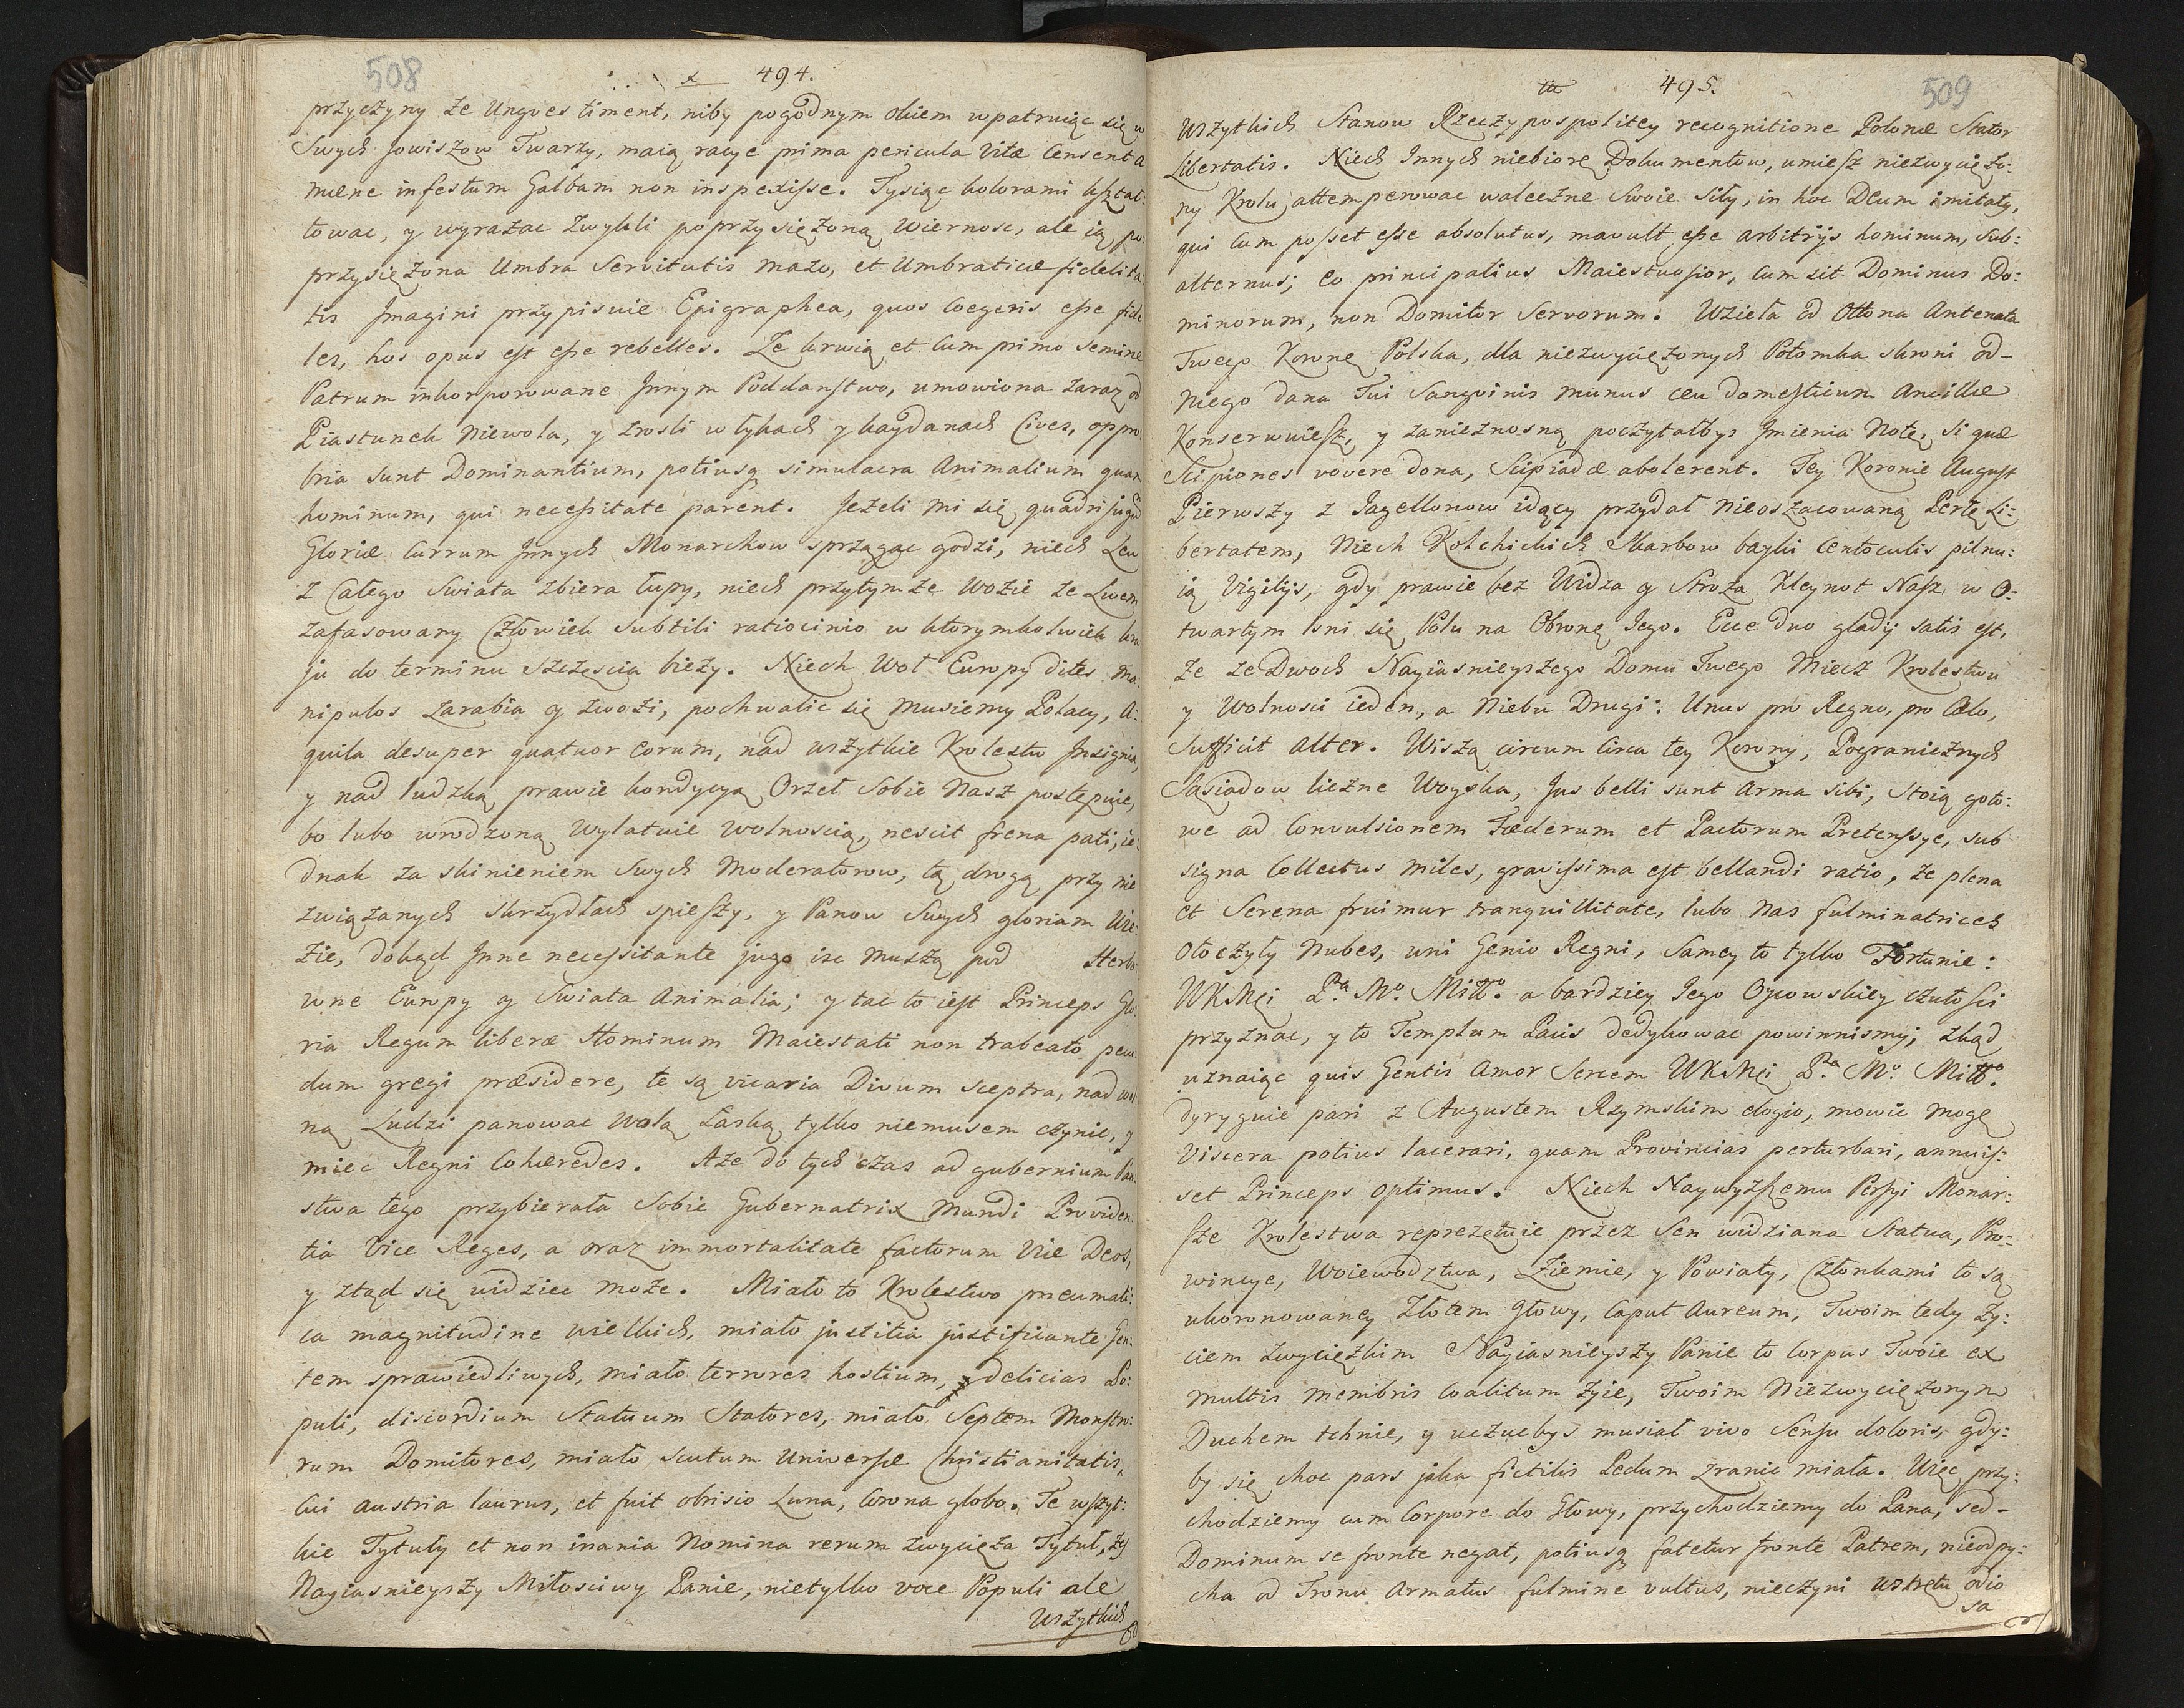 508
494.
przyczyny że Ungves timent, niby pogodnym okiem wpatruiąc się w
Swych Jowiszow Twarzy, maią racye prima pericula Vitæ Censent a
mæne infestum Galbam non inspexiſse. Tysiąc kolorami kſztał:
towac, y wyrażac zwykli poprzysiężoną wiernosc, ale ią po:
przysiężona Umbra Servitutis mażo, et Umbraticæ fidelita
tis Jmagini przypisuie Epigraphea, quos coegeris eſse fide
les, hos opus eſt eſse rebelles. Ze krwią et Cum primo semine
Patrum inkorporowane Jnnym Poddanſtwo, umowiona zaraz od
Piastunek niewola, y zrosli w łykach y kaydanach Cives, oppro
bria sunt Dominantium, potiusq simulacra Animalium quam
hominum, qui neceſsitate parent. Jeżeli mi się quadrijugū
Gloriæ Currum Jnnych Monarchow sprzągac godzi, niech Lew
z Całego Swiata zbiera łupy, niech przytymże wozie ze Lwem
zafasowany Człowiek subtili ratiocinio w ktorymkolwiek kra
ju do terminu szczęscia bieży. Niech Woł Europy dites ma:
nipulos zarabia y zwozi, pochwalic się musiemy Polacy, A:
quila desuper quatuor eorum, nad wszytkie Krolestw Jnsignia,
y nad ludzką prawie kondycyą Orzeł Sobie Nasz postępuie,
bo lubo wrodzoną wylatuie wolnoscią, nescit frena pati, ie:
dnak za skinieniem Swych Moderatorow, tą drogą przy nie
związanych skrzydłach spieſzy, y Panow Swych gloriam Wie:
zie, dokąd Jnne neceſsitante jugo isc muszą pod Herbo
wne Europy y Swiata Animalia; y tac to ieſt Princeps Glo
ria Regum liberæ Hominum Maiestati non trabeato pecu:
dum gregi præsidere, te są vicaria Divum sceptra, nad wol
ną Ludzi panowac Wolą Łaską tylko niemusem czynic, y
miec Regni Cohæredes. Aże do tych czas ad gubernium Pan
stwa tego przybierała Sobie Gubernatrix Mundi Providen:
tia Vice Reges, a oraz immortalitate factorum Vice Deos,
y ztąd się widziec może. Miało to Krolestwo pneumati:
ca magnitudine wielkich, miało justitia justificante Gen:
tem sprawiedliwych, miało terrores hostium, y delicias Po:
puli, discordium Statuum Statores, miało Septem Monſtro:
rum Domitores, miało scutum Universæ Christianitatis,
Cui Austria laurus, et fuit obrisio Luna, Corona globo. Te wſzyt:
kie Tytuły et non inania Nomina rerum zwycięża Tytuł, ży
Nayiasnieyszy Miłosciwy Panie, nietylko voce Populi ale
Wszytkich
495.
509
Wszytkich Stanow Rzeczypospolitey recognitione Polonæ Stator
Libertatis. Niech Jnnych niebiorę Dokumentow, umieſz niezwyciężo:
ny Krolu attemperowac waleczne Swoie Siły, in hoc Deum imitaty,
qui Cum poſset eſse absolutus, mavult eſse arbitrijs hominum, sub:
alternus; eo principalius Maiestuoſior, Cum sit Dominus Do:
minorum, non Domitor Servorum. Wzieła od Ottona Antenata
Twego Koronę Polska, dla niezwyciężonych Potomka skroni od-
Niego dana Tui Sangvinis munus ceu domeſticum Ancillæ
Konserwuieſz, y zanieznosną poczytałbys Jmienia Notę, si quæ
Scipiones vovere dona, Scipiadæ abolerent. Tey Koronie Auguſt
Pierwszy z Jagellonow idący przydał nieoszacowaną Perłę Li:
bertatem, Niech Kolchickich Skarbow bayki Centoculis pilnu:
ią Vigilijs, gdy prawie bez Widza y Stroża Kleynot Naſz, w o:
twartym lsni się Polu na Obronę Jego. Ecce duo gladij satis eſt,
że ze Dwoch Nayiasnieyszego Domu Twego Miecz Krolestwu
y Wolnosci ieden, a Niebu Drugi: Unus pro Regno, pro Cælo,
sufficit alter. Wiszą circum Circa tey Korony, Pogranicznych
Sąsiadow liczne Woyska, Jus belli sunt Arma sibi, stoią goto:
we ad Convulsionem Fœderum et Pactorum Pretenſye, sub
signa Collectus miles, graviſsima eſt bellandi ratio, że plena
et Serena fruimur tranquillitate, lubo Nas fulminatrices
otoczyły Nubes, uni Genio Regni, Samey to tylko Fortunie:
WKMci Pa. Mo. Miło. a bardziey Jego Oycowskiey czułoſci
przyznac, y to Templum Pacis dedykowac powinnismy; zkąd
uznaiąc quis Gentis Amor Sercem WKMci Pa. Mo. Miło.
dyryguie pari z Augustem Rzymskim elogio, mowic mogę
Viscera potius lacerari, quam Provincias perturbari, annuiſ:
set Princeps optimus. Niech Naywyżſzemu Perſyi Monar:
ſze Krolestwa reprezętuie przez Sen widziana Statua, Pro:
wincye, Woiewodztwa, Ziemie, y Powiaty, Członkami to są
ukoronowaney Złotem Głowy, Caput Aureum, Twoim tedy Ży:
ciem zwyciężkim Nayiasnieyszy Panie to Corpus Twoie ex
multis membris Coalitum żyie, Twoim Niezwyciężonym
Duchem tchnie, y uczucbys musiał vivo Senſu doloris, gdy:
by się choc pars jaka fictilis Pedum zranic miała. Więc przy:
chodziemy cum Corpore do Głowy, przychodziemy do Pana, sed-
Dominum se fronte negat, potiusq fatetur fronte Patrem, nieodpy:
cha od Tronu Armatus fulmine vultus, nieczyni wstrętu odio
sa